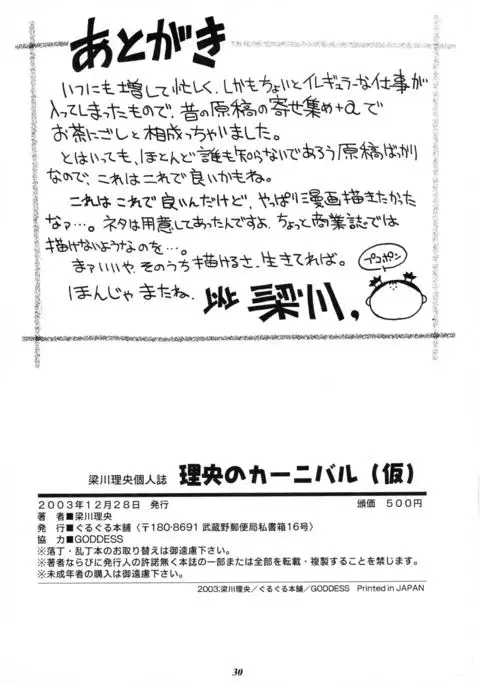 あとがき
いつにも増して忙しく、しかもちょいとイレギュラーな仕事が
入ってしまったもので、昔の原稿の寄せ集め+αで
お茶にごしと相成っちゃいました。
とはいっても、ほとんど誰も知らないであろう原稿ばっかり
なので、これはこれで良いかもね。
これはこれで良いんだけど、やっぱり漫画描きたかった
なァ…。ネタは用意してあったんですよ、ちょっと商業誌では
描けないようなのを…。
まァいいや、そのうち描けるさ、生きてれば。
プコポン
ほんじゃまたね、
梁川,
梁川理央個人誌 理央のカーニバル(仮)
2003年12月28日 発行 頒価 500円
著 者■梁川理央
発 行■ぐるぐる本舗〈〒180-8691 武蔵野郵便局私書箱16号〉
協 力■GODDESS
※落丁・乱丁本のお取り替えは御遠慮下さい。
※著者ならびに発行人の許諾無く本誌の一部または全部を転載・複製することを禁じます。
※未成年者の購入は御遠慮下さい。
2003:梁川理央/ぐるぐる本舗/GODDESS Printed in JAPAN
30